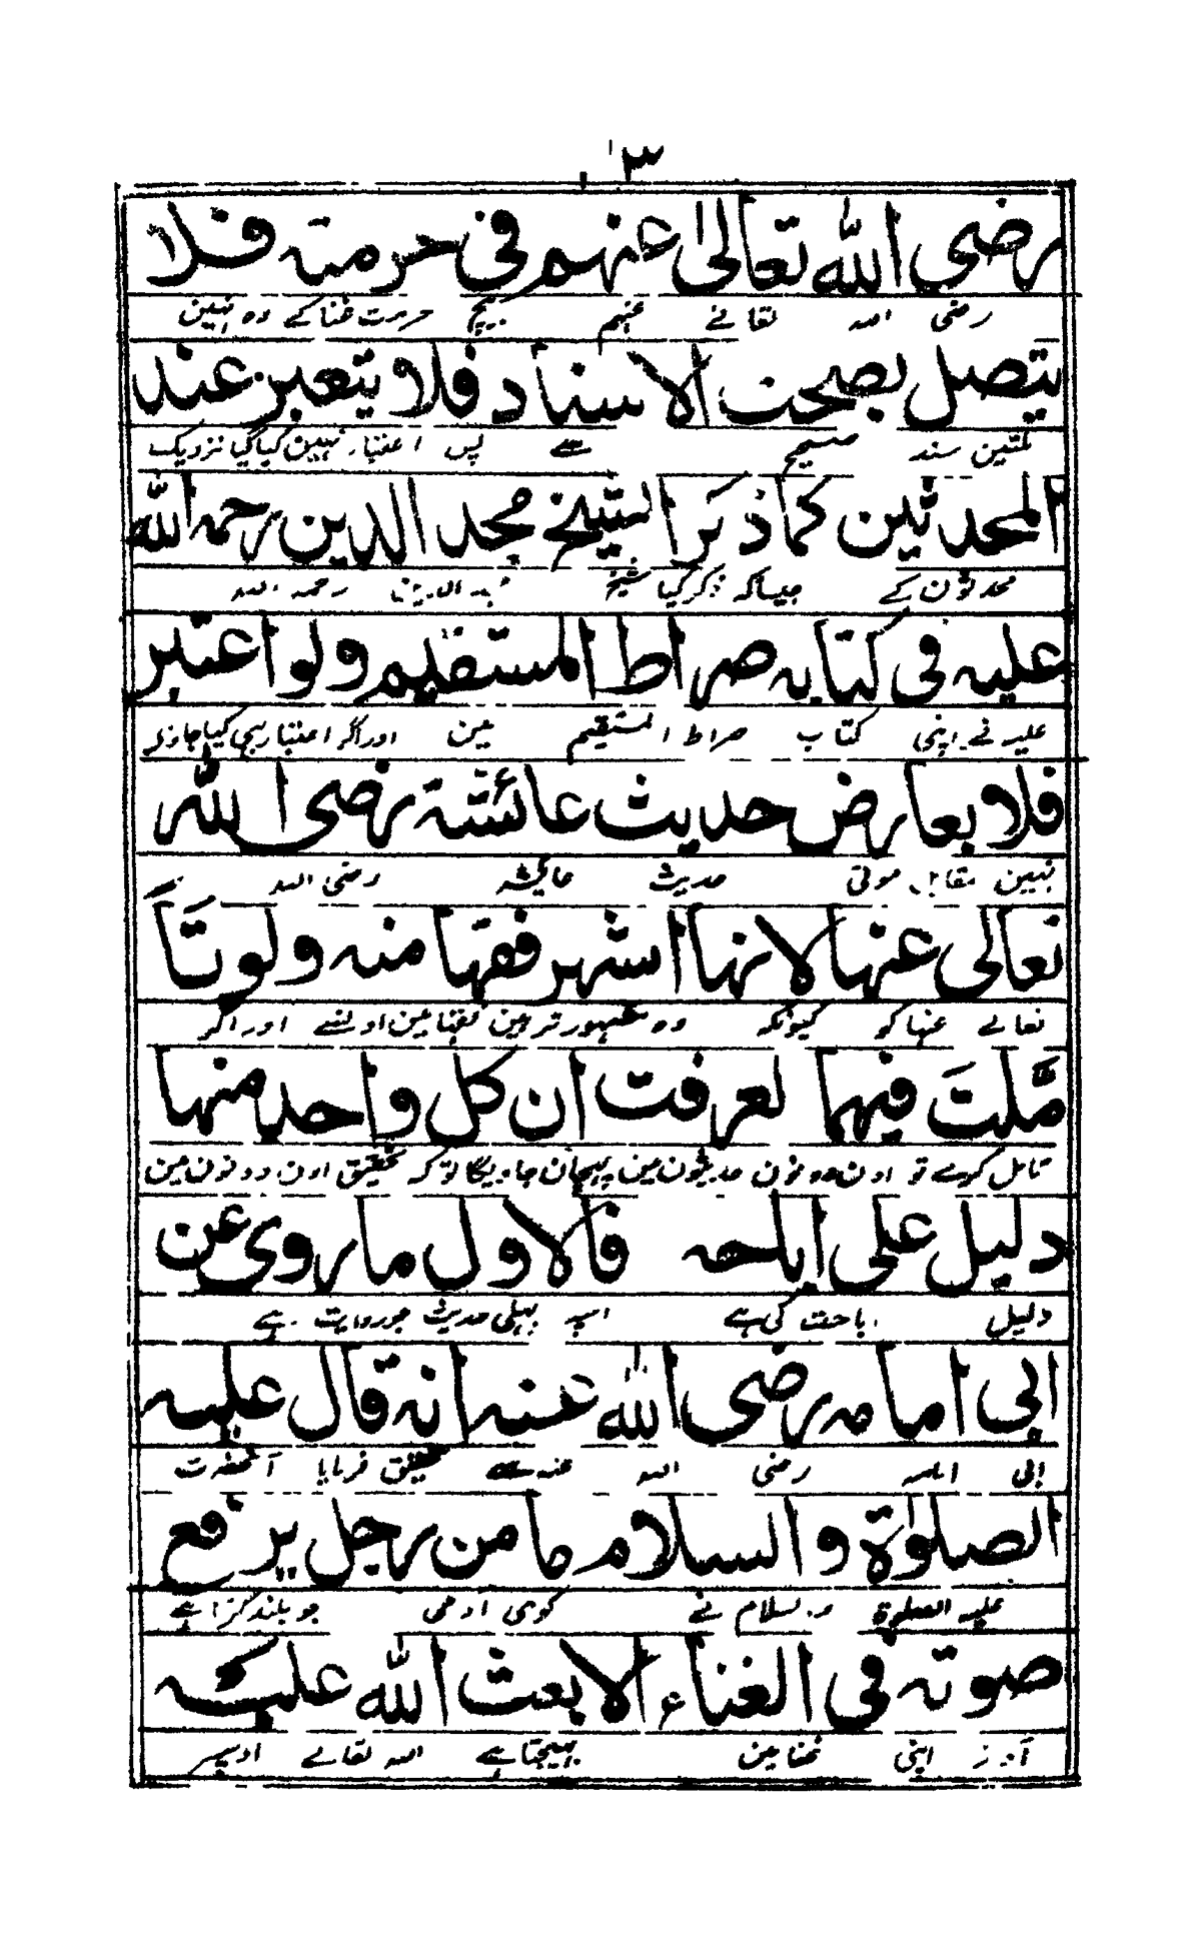 ٣
رضى الله تعالىٰ عنهم فى حرمته فلا
رضی اللہ تعالے عنہم بیچ حرمت غنا کے وہ نہین
يتصل بصحت الاسناد فلا يتعبر عند
سند صحیح سے پس اعتبار نہین کیا گیا نزدیک
المحدثين كما ذكر الشيخ مجد الدين رحمه الله
محدثون کے جیسا کہ ذکر کیا شیخ مجد الدین رحمہ اللہ
عليه فى كتابه صراط المستقيم ولو اعتبر
علیہ نے اپنی کتاب صراط المستقیم مین اور اگر اعتبار بہی کیا جاوے
فلا يعارض حديث عائشة رضى الله
نہین مقابل ہوتی حدیث عائشہ رضی اللہ
تعالى عنها لانها اشهر فقها منه ولو تَاَ
تعالے عنہا کو کیونکہ وہ مشہور تر ہین فقہا مین اونسے اور اگر
مَّلتَ فيهما لعرفت ان كل واحد منها
تامل کرے تو اون دونون حدیثون مین پہچان جاویگا توکہ تحقیق اون دونون مین
دليل على اباحه فالاول ما روى عن
دلیل اباحت کی ہے پہلی حدیث جو روایت ہے
ابى امامه رضى الله عنه انه قال عليه
ابی امامہ رضی اللہ عنہ سے تحقیق فرمایا آنحضرت
الصلوٰة والسلام ما من رجل يرفع
علیہ الصلوة والسلام نے کوئی آدمی جو بلند کرتا ہے
صوته فى الغناء الا بعث الله عليه
آواز اپنی غنا مین بہیجتا ہے اللہ تعالے اوسپر